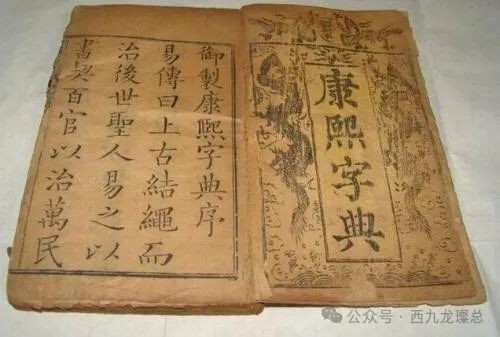 康熙字典
御製康熙字典序
易傳曰上古結繩而
治後世聖人易之以
書契百官以治萬民
公众号·西九龙璨总